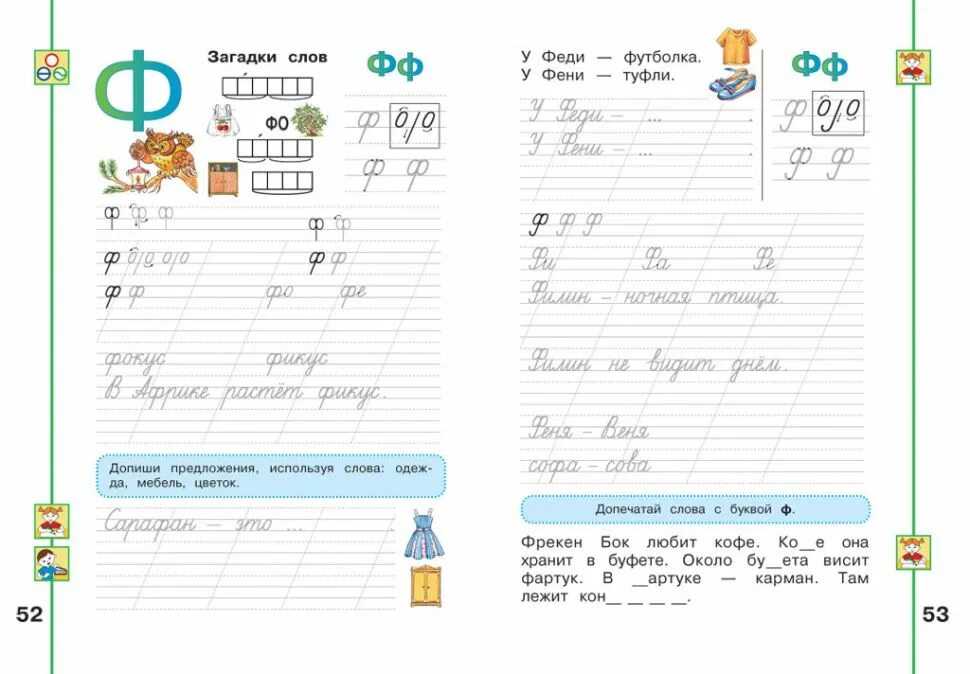 Ф
Загадки слов
Фф
ФО
ф
ф ф
ф ф ф
ф ф
ф
ф ф
ф ф
фо
фе
фокус
фикус
В Африке растёт фикус.
Допиши предложения, используя слова: одеж-
да, мебель, цветок.
Сарафан – это ...
52
У Феди — футболка.
У Фени — туфли.
Фф
У Феди – ... .
У Фени – ... .
Ф
Ф Ф
Ф Ф Ф
Фи
Фа
Фе
Филин – ночная птица.
Филин не видит днём.
Феня – Веня
софа – сова
Допечатай слова с буквой ф.
Фрекен Бок любит кофе. Ко__е она
хранит в буфете. Около бу__ета висит
фартук. В __артуке — карман. Там
лежит кон__ __ __ __.
53